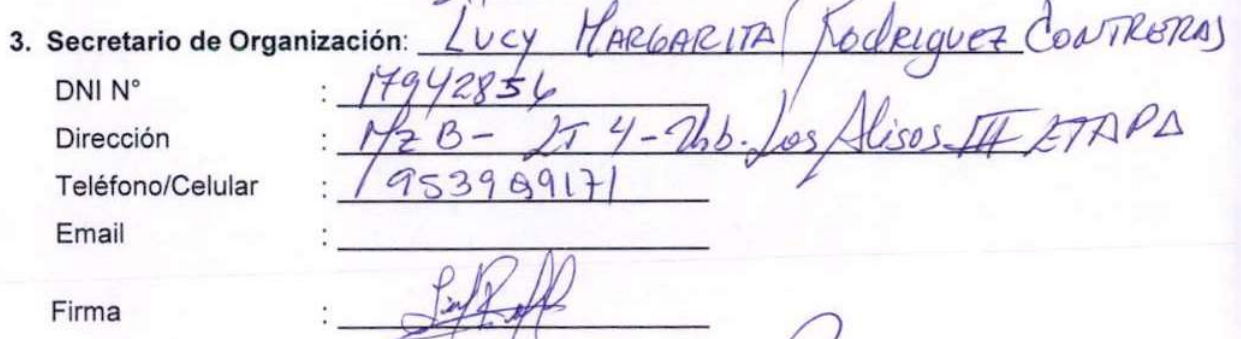 3. Secretario de Organización: Lucy MARGARITA Rodriguez CONTRERAS
DNI N° : 17942856
Dirección : Mz B - LT 4 - Urb. Los Alisos III ETAPA
Teléfono/Celular : 953989171
Email :
Firma :